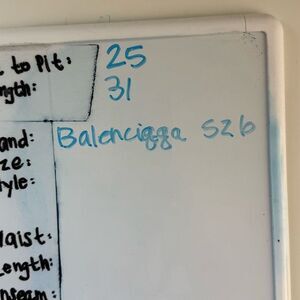 to Pit: 25
ngth: 31
and: Balenciaga SZ6
ze:
tyle:
Waist:
Length:
nseam: